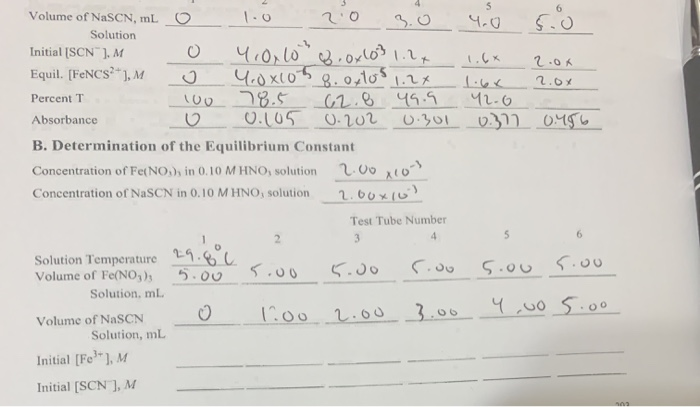 3 4 5 6
Volume of NaSCN, mL 0 1.0 2.0 3.0 4.0 5.0
Solution
Initial [SCN⁻], M 0 4.0x10⁻³ 8.0x10³ 1.2x 1.6x 2.0x
Equil. [FeNCS²⁺], M 0 4.0x10⁻⁵ 8.0x10⁵ 1.2x 1.6x 2.0x
Percent T 100 78.5 62.8 49.9 42.0
Absorbance 0 0.105 0.202 0.301 0.377 0.456
B. Determination of the Equilibrium Constant
Concentration of Fe(NO₃)₃ in 0.10 M HNO₃ solution 2.00 x10⁻³
Concentration of NaSCN in 0.10 M HNO₃ solution 2.00x10⁻³
Test Tube Number
1 2 3 4 5 6
Solution Temperature 29.8°C
Volume of Fe(NO₃)₃ 5.00 5.00 5.00 5.00 5.00 5.00
Solution, mL
Volume of NaSCN 0 1.00 2.00 3.00 4.00 5.00
Solution, mL
Initial [Fe³⁺], M
Initial [SCN⁻], M